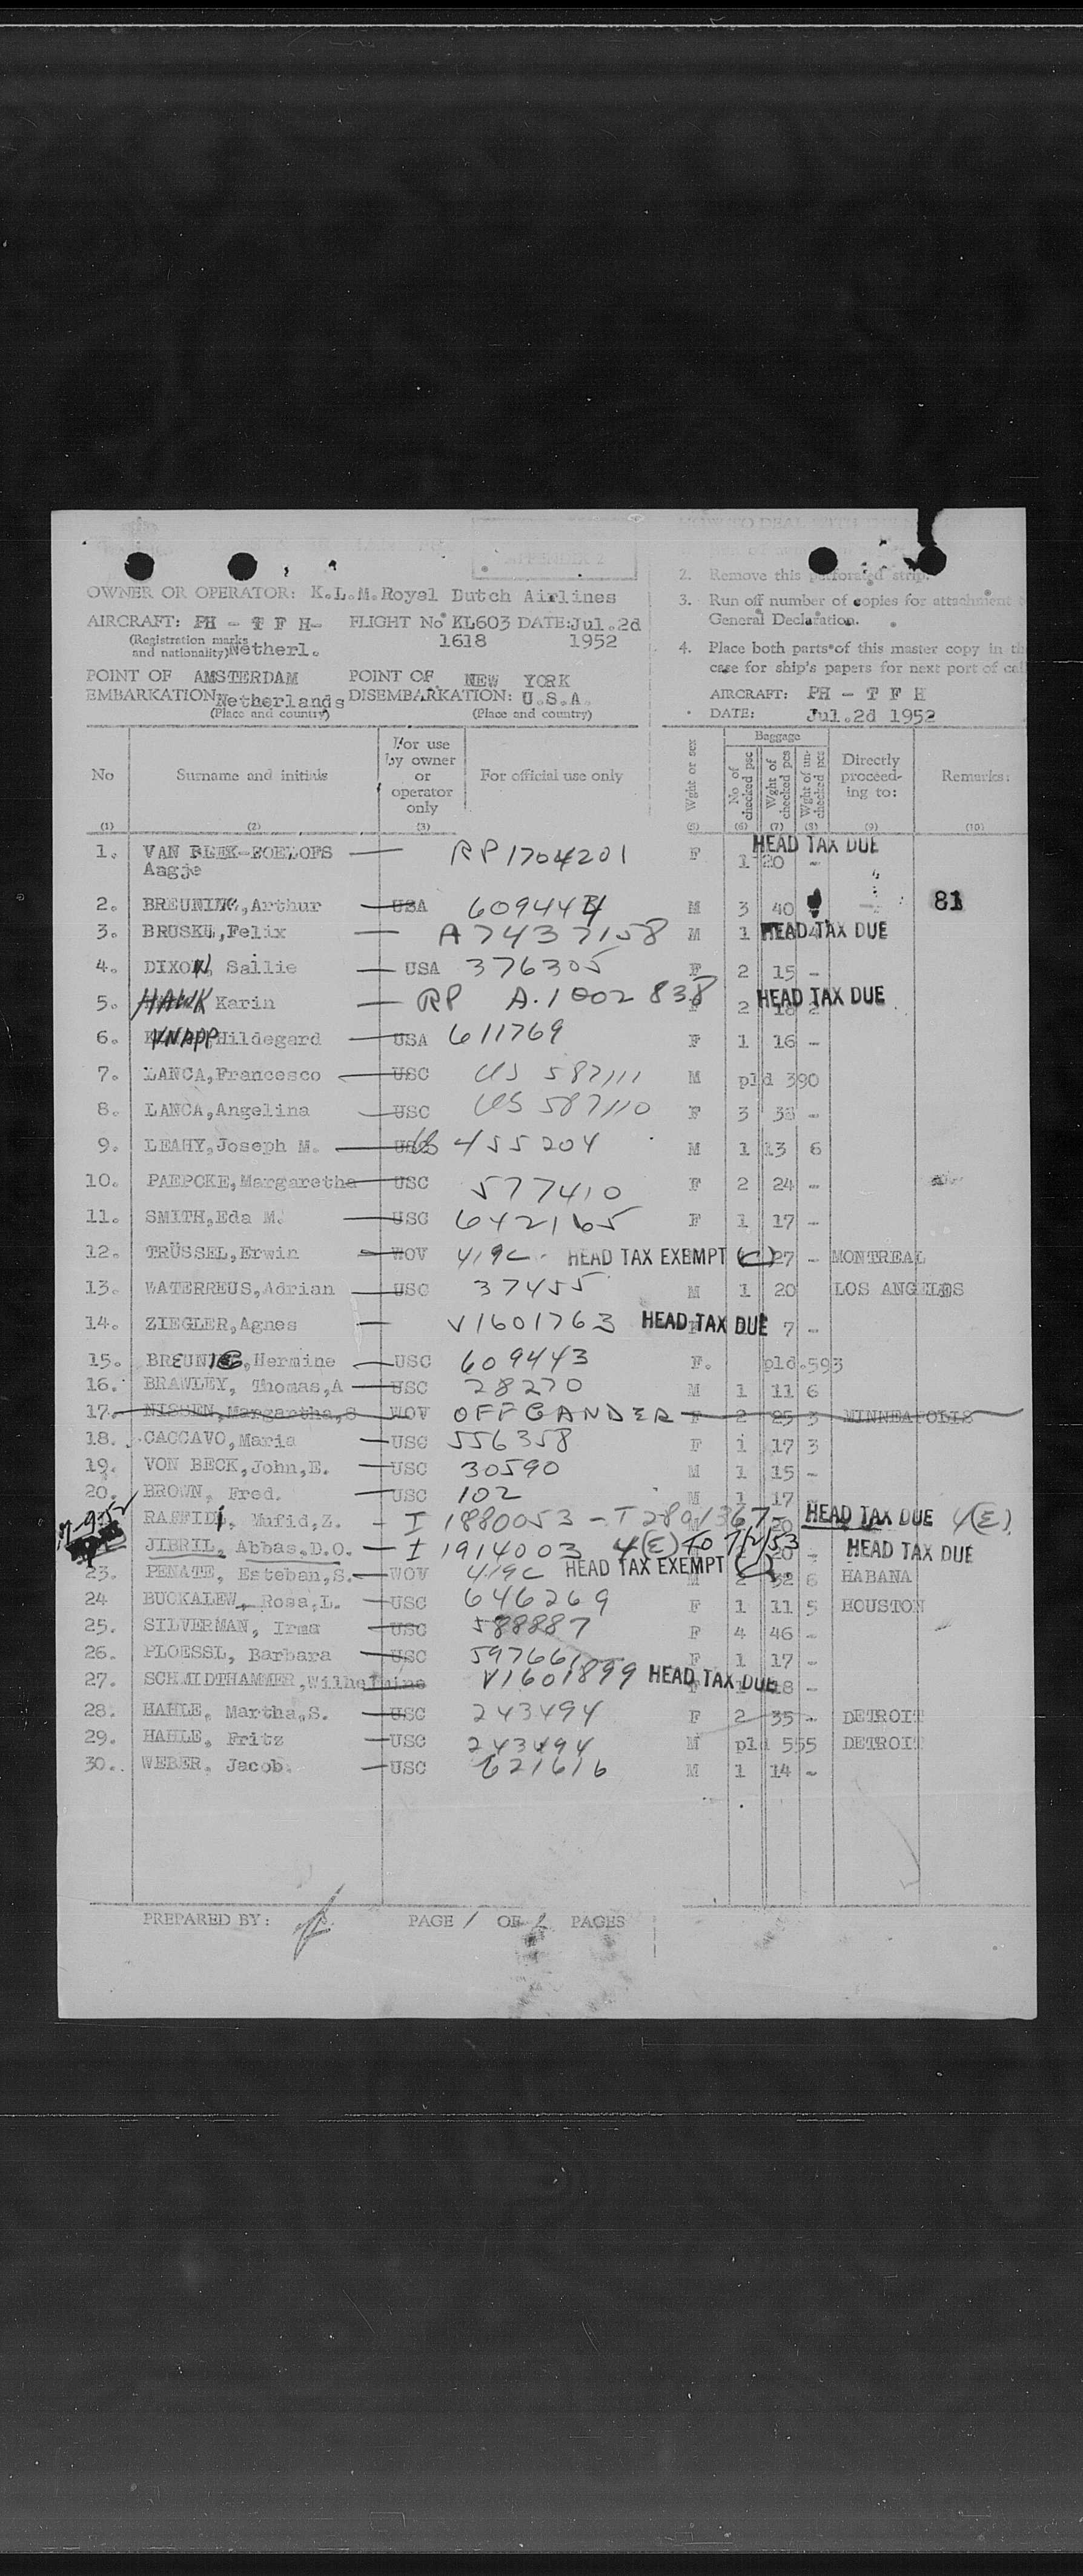 OWNER OR OPERATOR: K.L.M. Royal Dutch Airlines
AIRCRAFT: PH - T F H- FLIGHT No KL603 DATE: Jul.2d
(Registration marks and nationality) Netherl. 1618 1952
POINT OF EMBARKATION: AMSTERDAM Netherlands POINT OF DISEMBARKATION: NEW YORK U.S.A.
(Place and country) (Place and country)
2. Remove this perforated strip.
3. Run off number of copies for attachment
General Declaration.
4. Place both parts of this master copy in
case for ship's papers for next port of
AIRCRAFT: PH - T F H
DATE: Jul.2d 1952
No Surname and initials For use by owner or operator only For official use only Wght or sex Baggage No of checked psc Wght of checked pcs Wght of unchecked pcs Directly proceeding to: Remarks:
(1) (2) (3) (5) (6) (7) (8) (9) (10)
1. VAN — RP1704201 F 1 20 - HEAD TAX DUE
Aagje
2. BREUNING, Arthur USA 609444 M 3 40 81
3. BRUSKE, Felix — A7437158 M 1 HEAD TAX DUE
4. DIXON, Sallie — USA 376305 F 2 15 -
5. HAWK Karin — RP A.1002838 2 18 2 HEAD TAX DUE
6. KNAPP, Hildegard — USA 611769 F 1 16 -
7. LANCA, Francesco — USC US 587111 M pld 390
8. LANCA, Angelina — USC US 587110 F 3 -
9. LEAHY, Joseph M. — US 455204 M 1 13 6
10. PAEPCKE, Margaretha — USC 577410 F 2 24 -
11. SMITH, Eda M. — USC 642165 F 1 17 -
12. TRÜSSEL, Erwin — WOV 419C - HEAD TAX EXEMPT (C) 27 - MONTREAL
13. WATERREUS, Adrian — USC 37455 M 1 20 LOS ANGELES
14. ZIEGLER, Agnes — V1601763 HEAD TAX DUE 7 -
15. BREUNIG, Hermine — USC 609443 F. pld.593
16. BRAWLEY, Thomas, A — USC 28270 M 1 11 6
17. NISSEN, Margartha, S WOV OFF GANDER F 2 25 3 MINNEAPOLIS
18. CACCAVO, Maria — USC 556358 F 1 17 3
19. VON BECK, John, E. — USC 30590 M 1 15 -
20. BROWN, Fred. — USC 102 M 1 17
RAFFIDI, Mufid, Z. - I 1880053 - T2891367 20 HEAD TAX DUE 4(E)
JIBRIL, Abbas, D.O. — I 1914003 4(E) TO 7/2/53 20 - HEAD TAX DUE
23. PENATE, Esteban, S. — WOV 419C HEAD TAX EXEMPT (C) 2 32 6 HABANA
24 BUCKALEW, Rosa, L. — USC 646269 F 1 11 5 HOUSTON
25. SILVERMAN, Irma — USC 588887 F 4 46 -
26. PLOESSL, Barbara — USC 597661 F 1 17 -
27. SCHMIDTHAMMER, Wilhelmine V1601899 HEAD TAX DUE 18 -
28. HAHLE, Martha, S. — USC 243494 F 2 35 - DETROIT
29. HAHLE, Fritz — USC 243494 M pld 555 DETROIT
30.. WEBER, Jacob. — USC 621616 M 1 14 -
PREPARED BY: PAGE 1 OF 1 PAGES